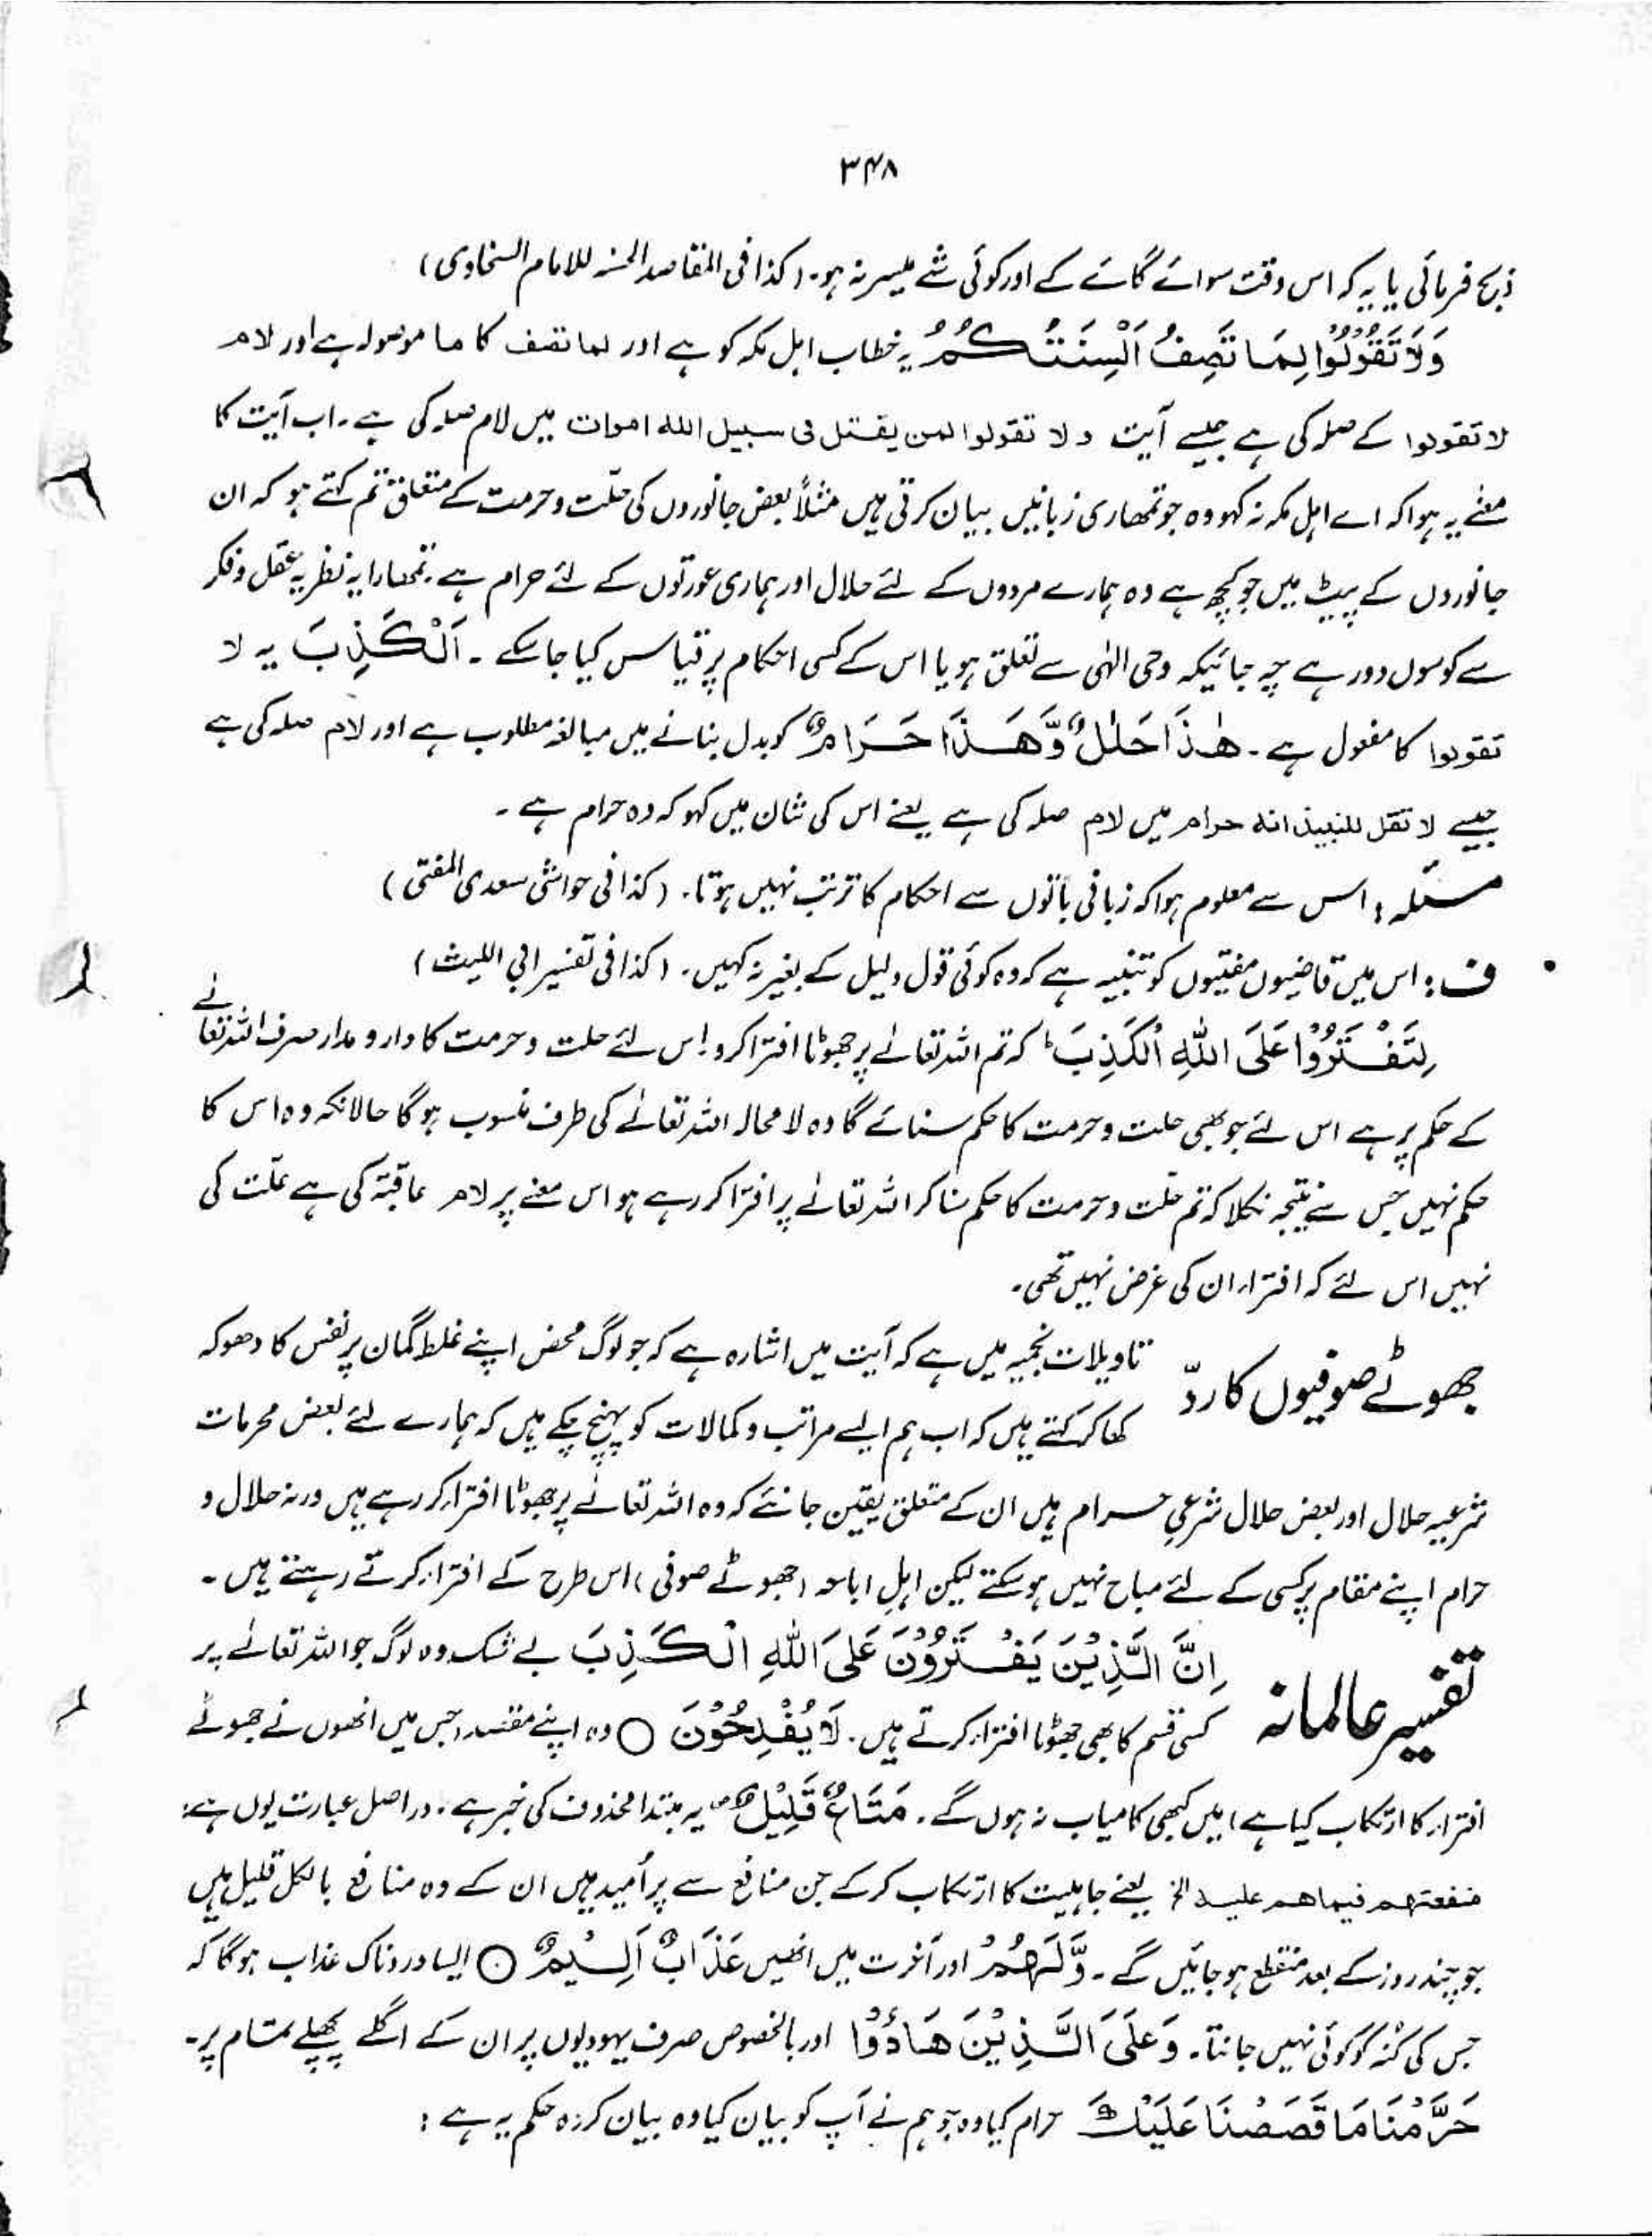 ۳۴۸
ذبح فرمائی یا یہ کہ اس وقت سوائے گائے کے اور کوئی شے میسر نہ ہو۔ (کذا فی المقاصد الحسنہ للامام السخاوی)
وَلَا تَقُوْلُوْا لِمَا تَصِفُ اَلْسِنَتُكُمُ یہ خطاب اہل مکہ کو ہے اور لما تصف کا ما موصولہ ہے اور لام
لا تقولوا کے صلہ کی ہے جیسے آیت ولا تقولوا لمن یقتل فی سبیل اللہ اموات میں لام صلہ کی ہے۔ اب آیت کا
معنٰے یہ ہوا کہ اے اہل مکہ نہ کہو وہ جو تمھاری زبانیں بیان کرتی ہیں مثلاً بعض جانوروں کی حلّت و حرمت کے متعلق تم کہتے ہو کہ ان
جانوروں کے پیٹ میں جو کچھ ہے وہ ہمارے مردوں کے لئے حلال اور ہماری عورتوں کے لئے حرام ہے۔ تمھارا یہ نظریہ عقل و فکر
سے کوسوں دور ہے چہ جائیکہ وحی الہٰی سے تعلق ہو یا اس کے کسی احکام پر قیاس کیا جا سکے۔ اَلْكَذِبَ یہ لا
تقولوا کا مفعول ہے۔ هٰذَا حَلٰلٌ وَّهٰذَا حَرَامٌ کو بدل بنانے میں مبالغہ مطلوب ہے اور لام صلہ کی ہے
جیسے لا تقل للنبیذ انہ حرام میں لام صلہ کی ہے یعنے اس کی شان میں کہو کہ وہ حرام ہے۔
مسئلہ : اس سے معلوم ہوا کہ زبانی باتوں سے احکام کا ترتب نہیں ہوتا۔ (کذا فی حواشی سعدی المفتی)
ف : اس میں قاضیوں مفتیوں کو تنبیہ ہے کہ وہ کوئی قول دلیل کے بغیر نہ کہیں۔ (کذا فی تفسیر ابی اللیث)
لِتَفْتَرُوْا عَلَى اللّٰهِ الْكَذِبَ ؕ کہ تم اللہ تعالےٰ پر جھوٹا افترا کرو اس لئے حلت و حرمت کا دار و مدار صرف اللہ تعالےٰ
کے حکم پر ہے اس لئے جو بھی حلت و حرمت کا حکم سنائے گا وہ لا محالہ اللہ تعالےٰ کی طرف منسوب ہو گا حالانکہ وہ اس کا
حکم نہیں جس سے نتیجہ نکلا کہ تم حلّت و حرمت کا حکم سنا کر اللہ تعالےٰ پر افترا کر رہے ہو اس معنے پر لام عاقبۃ کی ہے علّت کی
نہیں اس لئے کہ افتراء ان کی غرض نہیں تھی۔
جھوٹے صوفیوں کا ردّ تاویلات نجمیہ میں ہے کہ آیت میں اشارہ ہے کہ جو لوگ محض اپنے غلط گمان پر نفس کا دھوکہ
کھا کر کہتے ہیں کہ اب ہم ایسے مراتب و کمالات کو پہنچ چکے ہیں کہ ہمارے لئے بعض محرمات
شرعیہ حلال اور بعض حلال شرعی حرام ہیں ان کے متعلق یقین جانئے کہ وہ اللہ تعالےٰ پر جھوٹا افتراء کر رہے ہیں ورنہ حلال و
حرام اپنے مقام پر کسی کے لئے مباح نہیں ہو سکتے لیکن اہلِ اباحہ (جھوٹے صوفی) اس طرح کے افتراء کرتے رہتے ہیں۔
تفسیر عالمانہ اِنَّ الَّذِيْنَ يَفْتَرُوْنَ عَلَى اللّٰهِ الْكَذِبَ بے شک وہ لوگ جو اللہ تعالےٰ پر
کسی قسم کا بھی جھوٹا افتراء کرتے ہیں۔ لَا يُفْلِحُوْنَ ○ وہ اپنے مقصد (جس میں انھوں نے جھوٹے
افتراء کا ارتکاب کیا ہے) میں کبھی کامیاب نہ ہوں گے۔ مَتَاعٌ قَلِيْلٌ یہ مبتدا محذوف کی خبر ہے۔ دراصل عبارت یوں ہے:
منفعتھم فیما ھم علیہ الخ یعنے جاہلیت کا ارتکاب کر کے جن منافع سے پُر اُمید ہیں ان کے وہ منافع بالکل قلیل ہیں
جو چند روز کے بعد منقطع ہو جائیں گے۔ وَّلَهُمْ اور آخرت میں انھیں عَذَابٌ اَلِيْمٌ ○ ایسا دردناک عذاب ہو گا کہ
جس کی کُنہ کو کوئی نہیں جانتا۔ وَعَلَى الَّذِيْنَ هَادُوْا اور بالخصوص صرف یہودیوں پر ان کے اگلے پچھلے تمام پر۔
حَرَّمْنَا مَا قَصَصْنَا عَلَيْكَ حرام کیا وہ جو ہم نے آپ کو بیان کیا وہ بیان کردہ حکم یہ ہے :